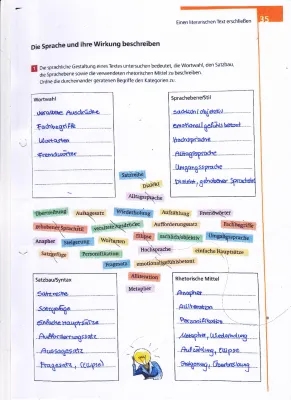 Einen literarischen Text erschließen 35
Die Sprache und ihre Wirkung beschreiben
1 Die sprachliche Gestaltung eines Textes untersuchen bedeutet, die Wortwahl, den Satzbau,
die Sprachebene sowie die verwendeten rhetorischen Mittel zu beschreiben.
Ordne die durcheinander geratenen Begriffe den Kategorien zu.
Wortwahl
veraltete Ausdrücke
Fachbegriffe
Wortarten
Fremdwörter
Sprachebene/Stil
sachlich/objektiv
emotional/gefühlsbetont
Hochsprache
Alltagssprache
Umgangssprache
Dialekt, gehobener Sprachstil
Satzreihe
Dialekt
Alltagssprache
Übertreibung Aussagesatz Wiederholung Aufzählung Fremdwörter
gehobener Sprachstil veraltete Ausdrücke Aufforderungssatz Fachbegriffe
Anapher Steigerung Wortarten Ellipse sachlich/objektiv Umgangssprache
Satzgefüge Personifikation Hochsprache einfache Hauptsätze
Fragesatz emotional/gefühlsbetont
Alliteration
Metapher
Satzbau/Syntax
Satzreihe
Satzgefüge
Einfache Hauptsätze
Aufforderungssatz
Aussagesatz
Fragesatz, (Ellipse)
Rhetorische Mittel
Anapher
Alliteration
Personifikation
Metapher, Wiederholung
Aufzählung, Ellipse
Steigerung, Übertreibung